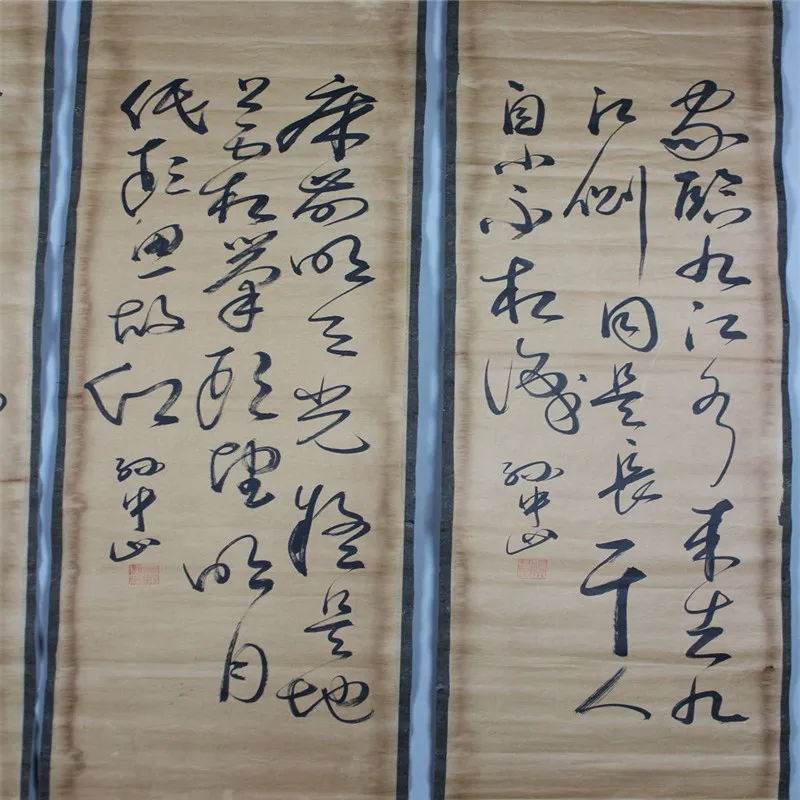 家臨九江水来去九
江側同是長干人
自小不相識
孫中山
床前明月光疑是地
上霜舉頭望明月
低頭思故鄉
孫中山